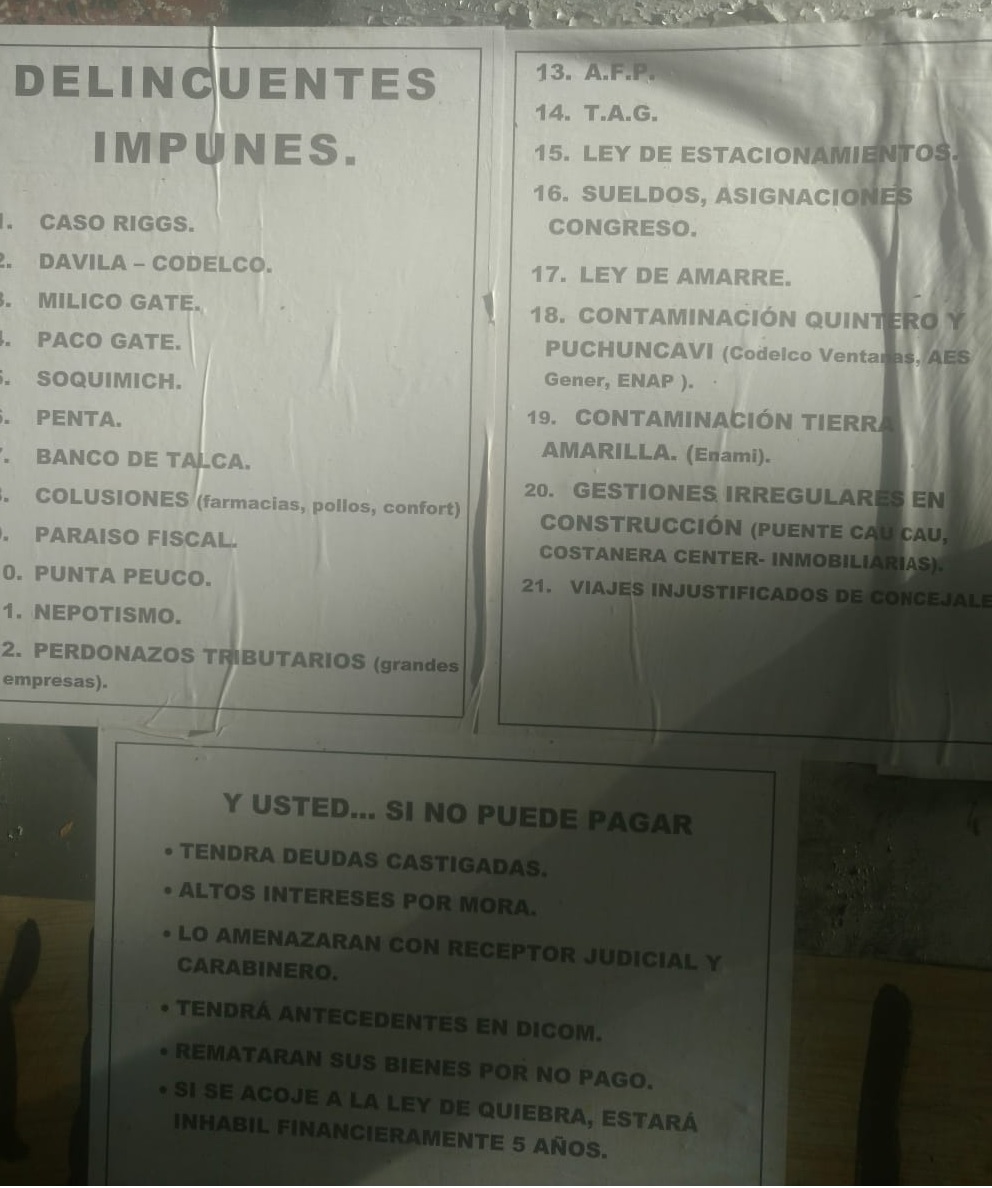 DELINCUENTES
IMPUNES.
1. CASO RIGGS.
2. DAVILA – CODELCO.
3. MILICO GATE.
4. PACO GATE.
5. SOQUIMICH.
6. PENTA.
7. BANCO DE TALCA.
8. COLUSIONES (farmacias, pollos, confort)
9. PARAISO FISCAL.
0. PUNTA PEUCO.
1. NEPOTISMO.
2. PERDONAZOS TRIBUTARIOS (grandes
empresas).
13. A.F.P.
14. T.A.G.
15. LEY DE ESTACIONAMIENTOS.
16. SUELDOS, ASIGNACIONES
CONGRESO.
17. LEY DE AMARRE.
18. CONTAMINACIÓN QUINTERO Y
PUCHUNCAVI (Codelco Ventanas, AES
Gener, ENAP ).
19. CONTAMINACIÓN TIERRA
AMARILLA. (Enami).
20. GESTIONES IRREGULARES EN
CONSTRUCCIÓN (PUENTE CAU CAU,
COSTANERA CENTER- INMOBILIARIAS).
21. VIAJES INJUSTIFICADOS DE CONCEJALE
Y USTED... SI NO PUEDE PAGAR
• TENDRA DEUDAS CASTIGADAS.
• ALTOS INTERESES POR MORA.
• LO AMENAZARAN CON RECEPTOR JUDICIAL Y
CARABINERO.
• TENDRÁ ANTECEDENTES EN DICOM.
• REMATARAN SUS BIENES POR NO PAGO.
• SI SE ACOJE A LA LEY DE QUIEBRA, ESTARÁ
INHABIL FINANCIERAMENTE 5 AÑOS.